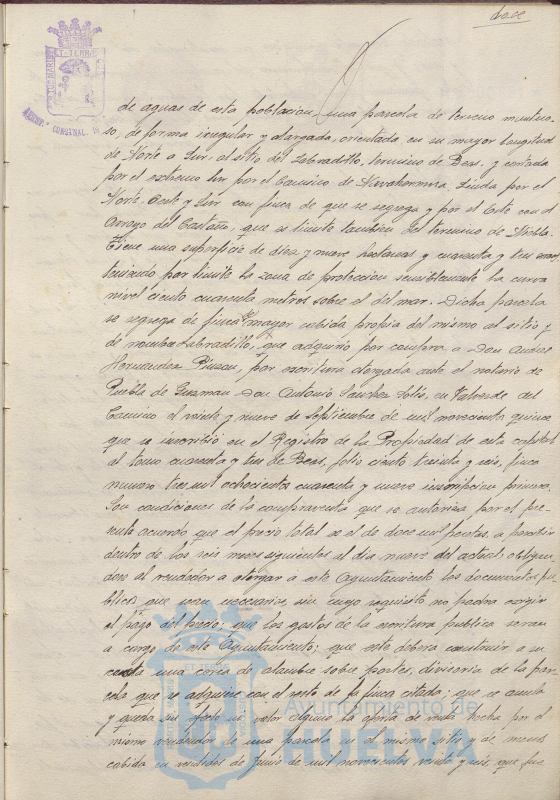 doce
PORTUS MARIS ET TERRAE
ARCHIVO MUNICIPAL
de aguas de esta poblacion, una parcela de terreno montuo-
so, de forma irregular y alargada, orientada en su mayor longitud
de Norte a Sur, al sitio del Labradillo, termino de Beas, y cortada
por el extremo Sur por el Camino de Navahermosa. Linda por el
Norte, Oeste y Sur con finca de que se segrega y por el Este con el
Arroyo del Castaño, que es limite tambien del termino de Niebla.
Tiene una superficie de diez y nueve hectareas y cuarenta y tres areas,
teniendo por limite la zona de proteccion sensiblemente la curva
nivel ciento cuarenta metros sobre el del mar. Dicha parcela
se segrega de finca de mayor cabida propia del mismo al sitio y
de nombre Labradillo, que adquirió por compra a Don Andres
Hernandez Pinzon, por escritura otorgada ante el notario de
Puebla de Guzman Don Antonio Sanchez Solis, en Valverde del
Camino el veinte y nueve de Septiembre de mil novecientos quince
que se inscribió en el Registro de la Propiedad de esta capital
al tomo cuarenta y tres de Beas, folio ciento treinta y seis, finca
numero tres mil ochocientos cuarenta y nueve inscripcion primera.
Son condiciones de la compraventa que se autoriza por el pre-
sente acuerdo, que el precio total es el de doce mil pesetas, a percibir
dentro de los seis meses siguientes al dia nueve del actual obligan-
dose al vendedor a otorgar a este Ayuntamiento los documentos pú-
blicos que sean necesarios, sin cuyo requisito no podra exigir
el pago del precio; que los gastos de la escritura publica seran
a cargo de este Ayuntamiento; que este debera construir a su
costa una cerca de alambre sobre postes, divisoria de la par-
cela que se adquiere con el resto de la finca citada; que se anula
y queda sin efecto ni valor alguno la oferta de venta hecha por el
mismo vendedor de una parcela en el mismo sitio y de menos
cabida en veintidos de Junio de mil novecientos veinte y seis, que fue
Ayuntamiento de
HUELVA